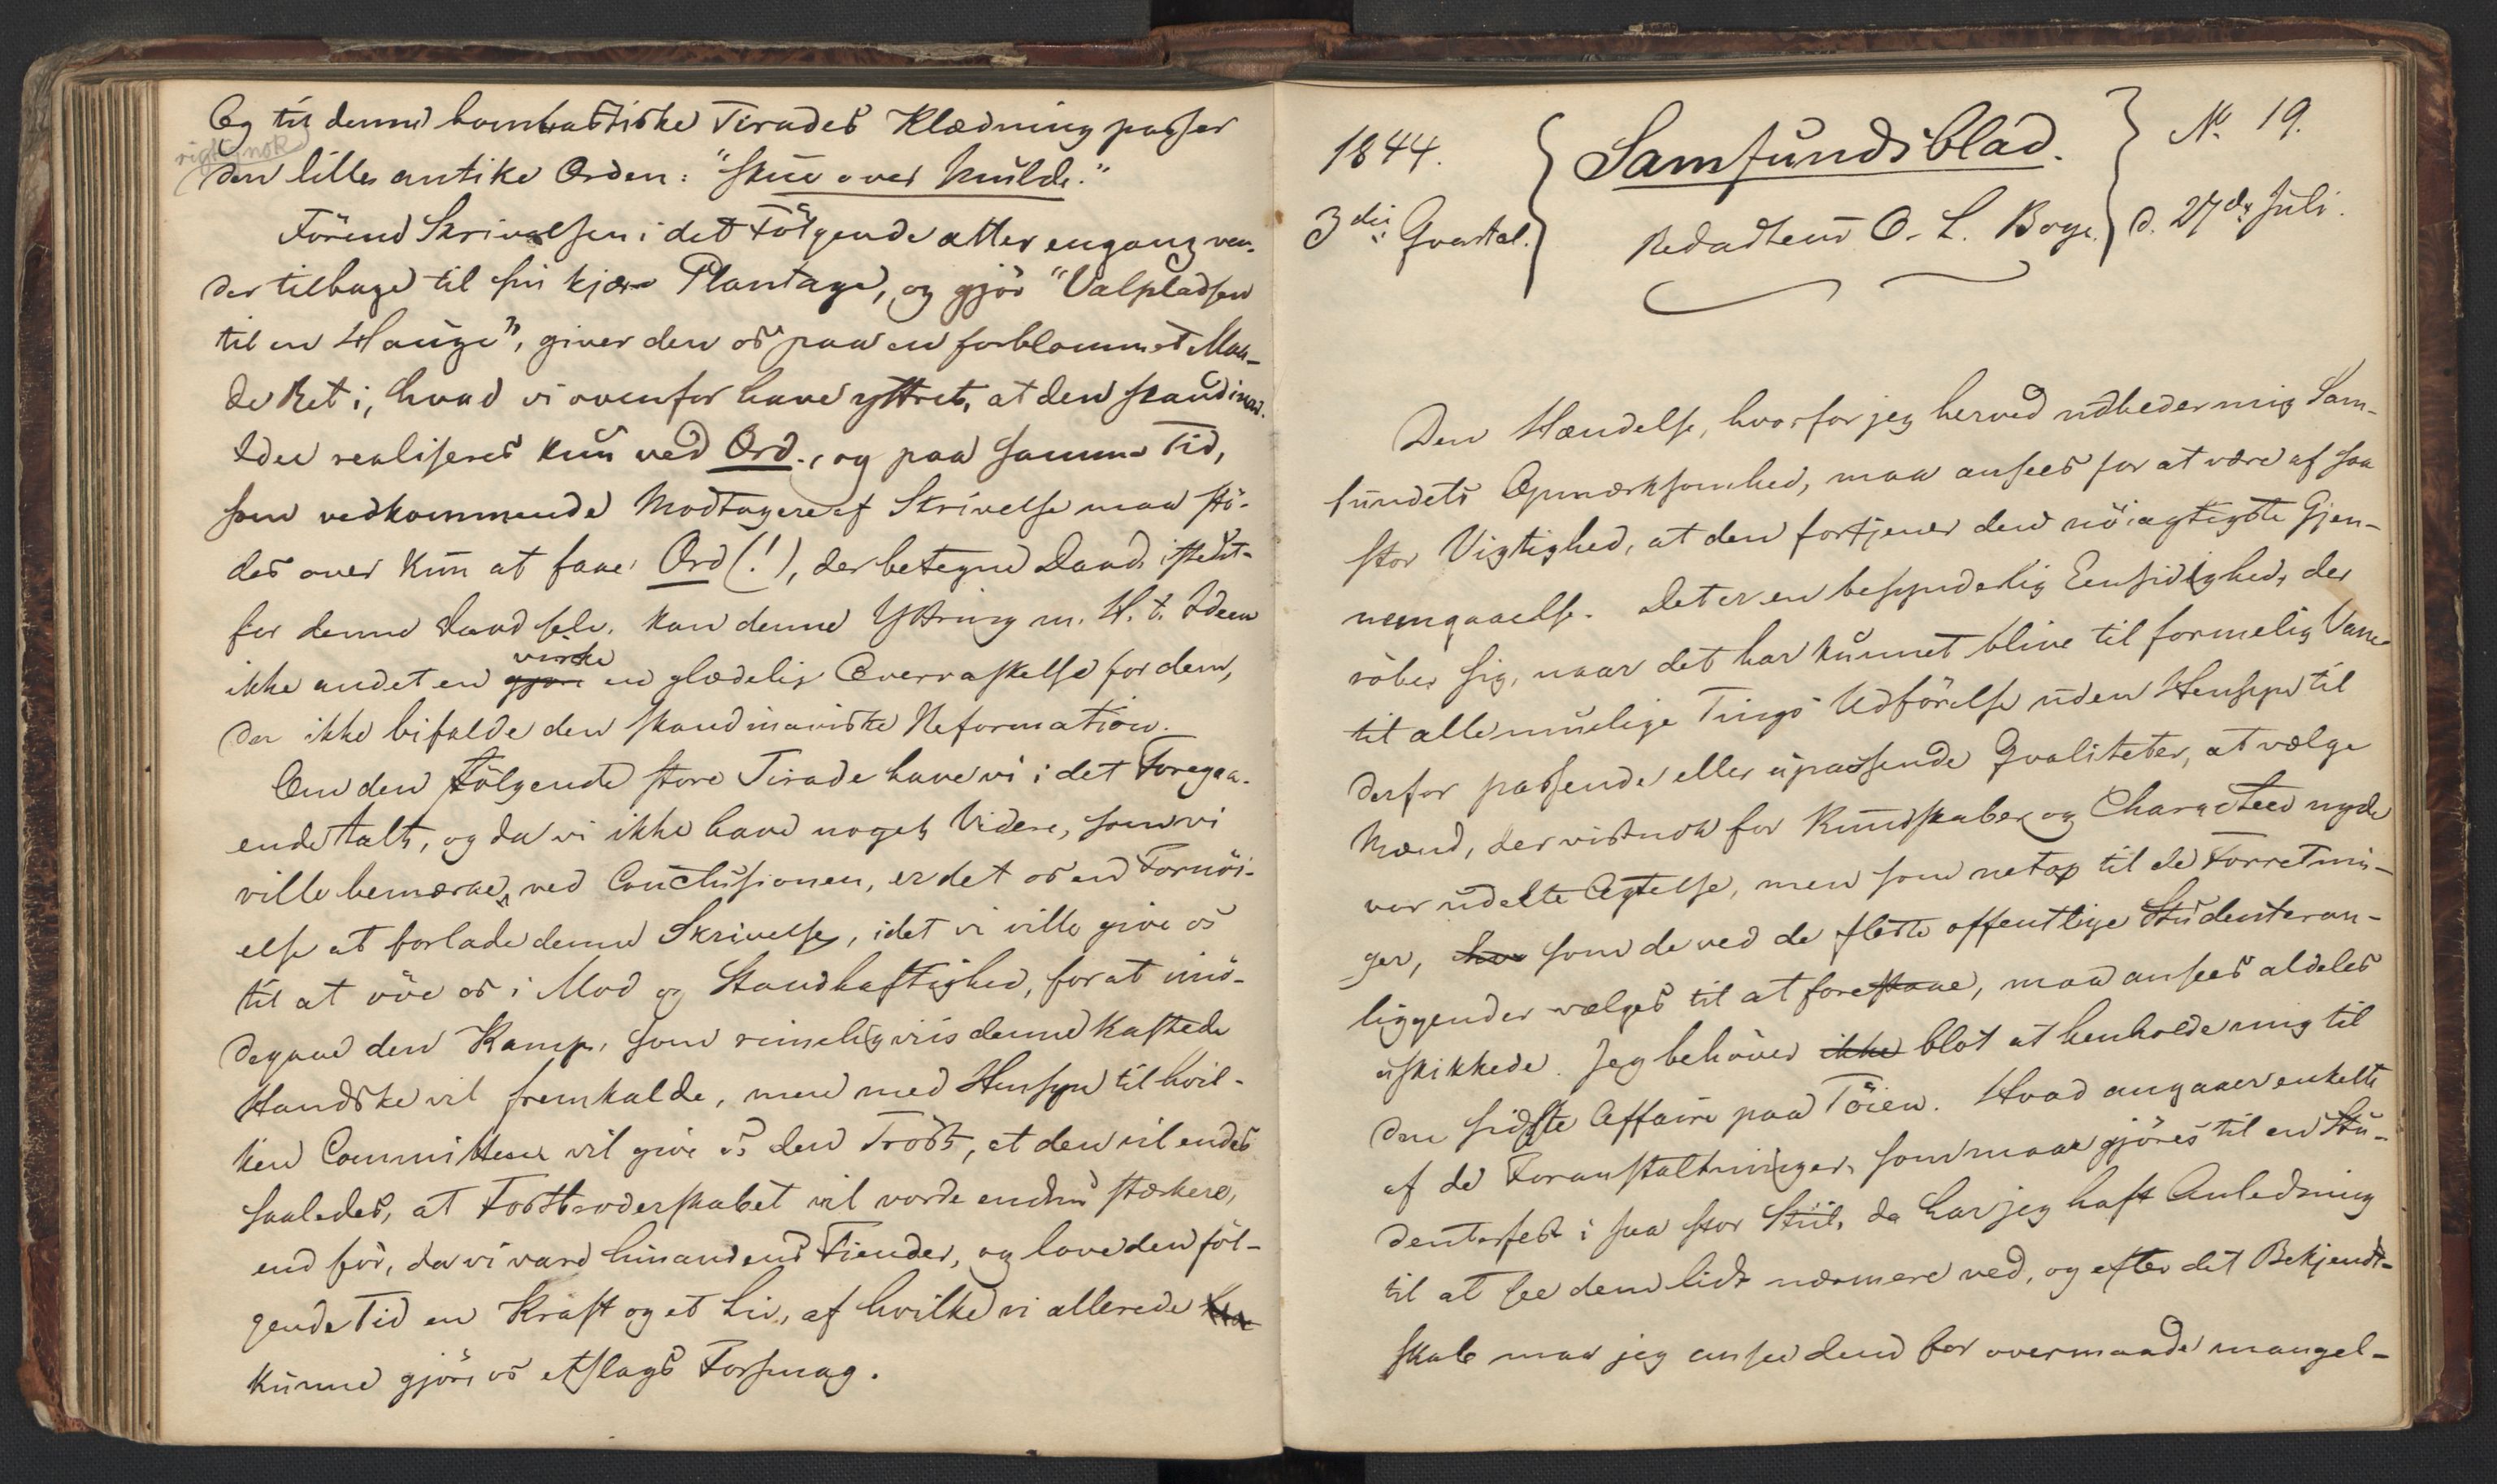 Og til denne bombastiske Tirades Klædning passer
rigtignok
den lille antike Orden: "skue over Mulde."
Förend Skrivelsen i det Fölgende atter engang ven-
der tilbage til sin kjære Plantage, og gjör "Valpladsen
til en Hauge", giver den os paa en forblommet Maa-
de Ret i, hvad vi ovenfor have yttret, at den skandinav.
Idee realiseres kun ved Ord., og paa samme Tid,
som vedkommende Modtagere af Skrivelse maa stö-
des over kun at faae Ord (!), der betegne Daad istedet-
for denne Daad selv, kan denne Yttring m. H. t. Ideen
virke
ikke andet en gjöre en glædelig Overraskelse for dem,
der ikke bifalde den skandinaviske Reformation.
Om den fölgende store Tirade have vi i det Foregaa-
ende talt, og da vi ikke have noget Videre, som vi
ville bemærke, ved Conclusionen, er det os en Fornöi-
else at forlade denne Skrivelse, idet vi ville give os
til at öve os i Mod og Standhaftighed, for at imö-
degaae den Kamp, som rimeligviis denne kastede
Handske vil fremkalde, men med Hensyn til hvil-
ken Committeen vil give os den Tröst, at den vil endes
saaledes, at Fostbroderskabet vil vorde endnu stærkere,
end för, da vi vare hinandens Fiender, og love den föl-
gende Tid en Kraft og et Liv, af hvilke vi allerede
kunne gjöre os etslags Forsmag.
1844.
3die Qvartal.
Samfundsblad.
Redacteur O. L. Boye.
No 19.
d. 27de Juli.
Den Hændelse, hvorfor jeg herved udbeder mig Sam-
fundets Opmærksomhed, maa ansees for at være af saa
stor Vigtighed, at den fortjener den nöiagtigste Gjen-
nemgaaelse. Det er en besynderlig Eensidighed, der
röber sig, naar det har kunnet blive til formelig Vane
til alle muelige Tings Udförelse uden Hensyn til
derfor passende eller upassende Qvaliteter, at vælge
Mænd, der vistnok for Kundskaber og Characteer nyde
vor udelte Agtelse, men som netop til de Forretnin-
ger, som de ved de fleste offentlige Studenteran-
liggender vælges til at forestaae, maa ansees aldeles
uskikkede. Jeg behöver ikke blot at henholde mig til
den sidste Affaire paa Töien. Hvad angaaer enkelte
af de Foranstaltninger, som maae gjöres til en Stu-
denterfest i saa stor Stiil, da har jeg haft Anledning
til at see dem lidt nærmere ved, og efter det Bekjendt-
skab maa jeg ansee dem for overmaade mangel-